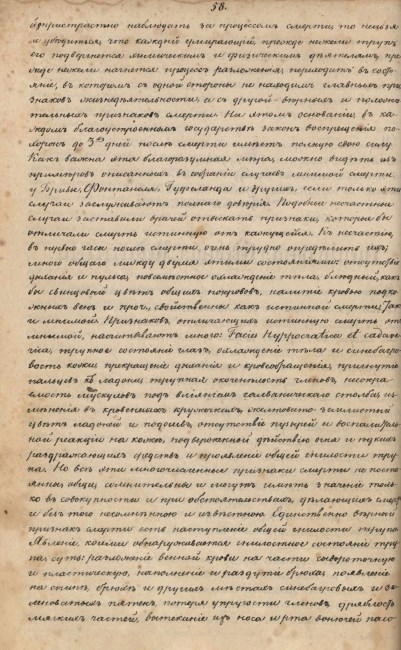 58.
безпристрастно наблюдать за процессомъ смерти, то нельзя
не убедиться, что каждый умирающій, прежде нежели трупъ
его подвергнется химическимъ и физическимъ дѣятелямъ, пре-
жде нежели начнется процессъ разложенія, переходитъ въ состо-
яніе, въ которомъ съ одной стороны не находимъ главныхъ при-
знаковъ жизнедѣятельности, а съ другой вѣрныхъ и положи-
тельныхъ признаковъ смерти. На этомъ основаніи въ ка-
ждомъ благоустроенномъ государствѣ законъ воспрещенія по-
хоронъ до 3хъ дней послѣ смерти имѣетъ полную свою силу
Какъ важна эта благоразумная мѣра, можно видѣть изъ
примѣровъ описанныхъ въ собраніи случаевъ мнимой смерти
у Брюье, Фонтанеля, Гуфеланда и другихъ, если только эти
случаи заслуживаютъ полнаго довѣрія. Подобные несчастные
случаи заставили врачей отыскать признаки, которые бы
отличали смерть истинную отъ кажущейся. Къ несчастію,
въ первые часы послѣ смерти очень трудно опредѣлить ихъ;
много общаго между двумя этими состояніями: отсутствіе
дыханія и пульса, повсемѣстное охлажденіе тѣла, блѣдный, какъ
бы свинцовый цвѣтъ общихъ покрововъ, налитіе кровью подко-
жныхъ венъ и проч., свойственны какъ истинной смерти, такъ
и мнимой. Признаковъ, отличающихъ истинную смерть отъ
мнимой, насчитываютъ много: Facies Hyppocratica et cadave-
rica, трупное состояніе глазъ, охлажденіе тѣла и синебагро-
вость кожи, прекращеніе дыханія и кровообращенія, пригнутіе
пальцевъ къ ладони, трупная окоченѣлость членовъ, несокра-
тимость мускуловъ подъ вліяніемъ гальваническаго столба, из-
мѣненія въ кровяныхъ кружечкахъ, желтовато-землистый
цвѣтъ ладоней и подошвъ, отсутствіе пузырей и воспалитель-
ной реакціи на кожѣ, подверженной дѣйствію огня и ѣдкихъ
раздражающихъ средствъ и проявленіе общей гнилости тру-
па. Но всѣ эти многочисленные признаки смерти не посто-
янны, общи, сомнительны и могутъ имѣть значеніе толь-
ко въ совокупности и при обстоятельствахъ, дѣлающихъ смерть
и безъ того несомнѣнною и извѣстною. Единственно вѣрный
признакъ смерти есть наступленіе общей гнилости трупа.
Явленіе, коими обнаруживается гнилостное состояніе тру-
па суть: разложеніе венной крови на части сывороточную
и пластическую, наполненіе и раздутіе брюха, появленіе
на спинѣ, брюхѣ и другихъ мѣстахъ синебагровыхъ и зе-
леноватыхъ пятенъ, потеря упругости членовъ, дряблость
мягкихъ частей, вытеканіе изъ носа и рта вонючей пасо-